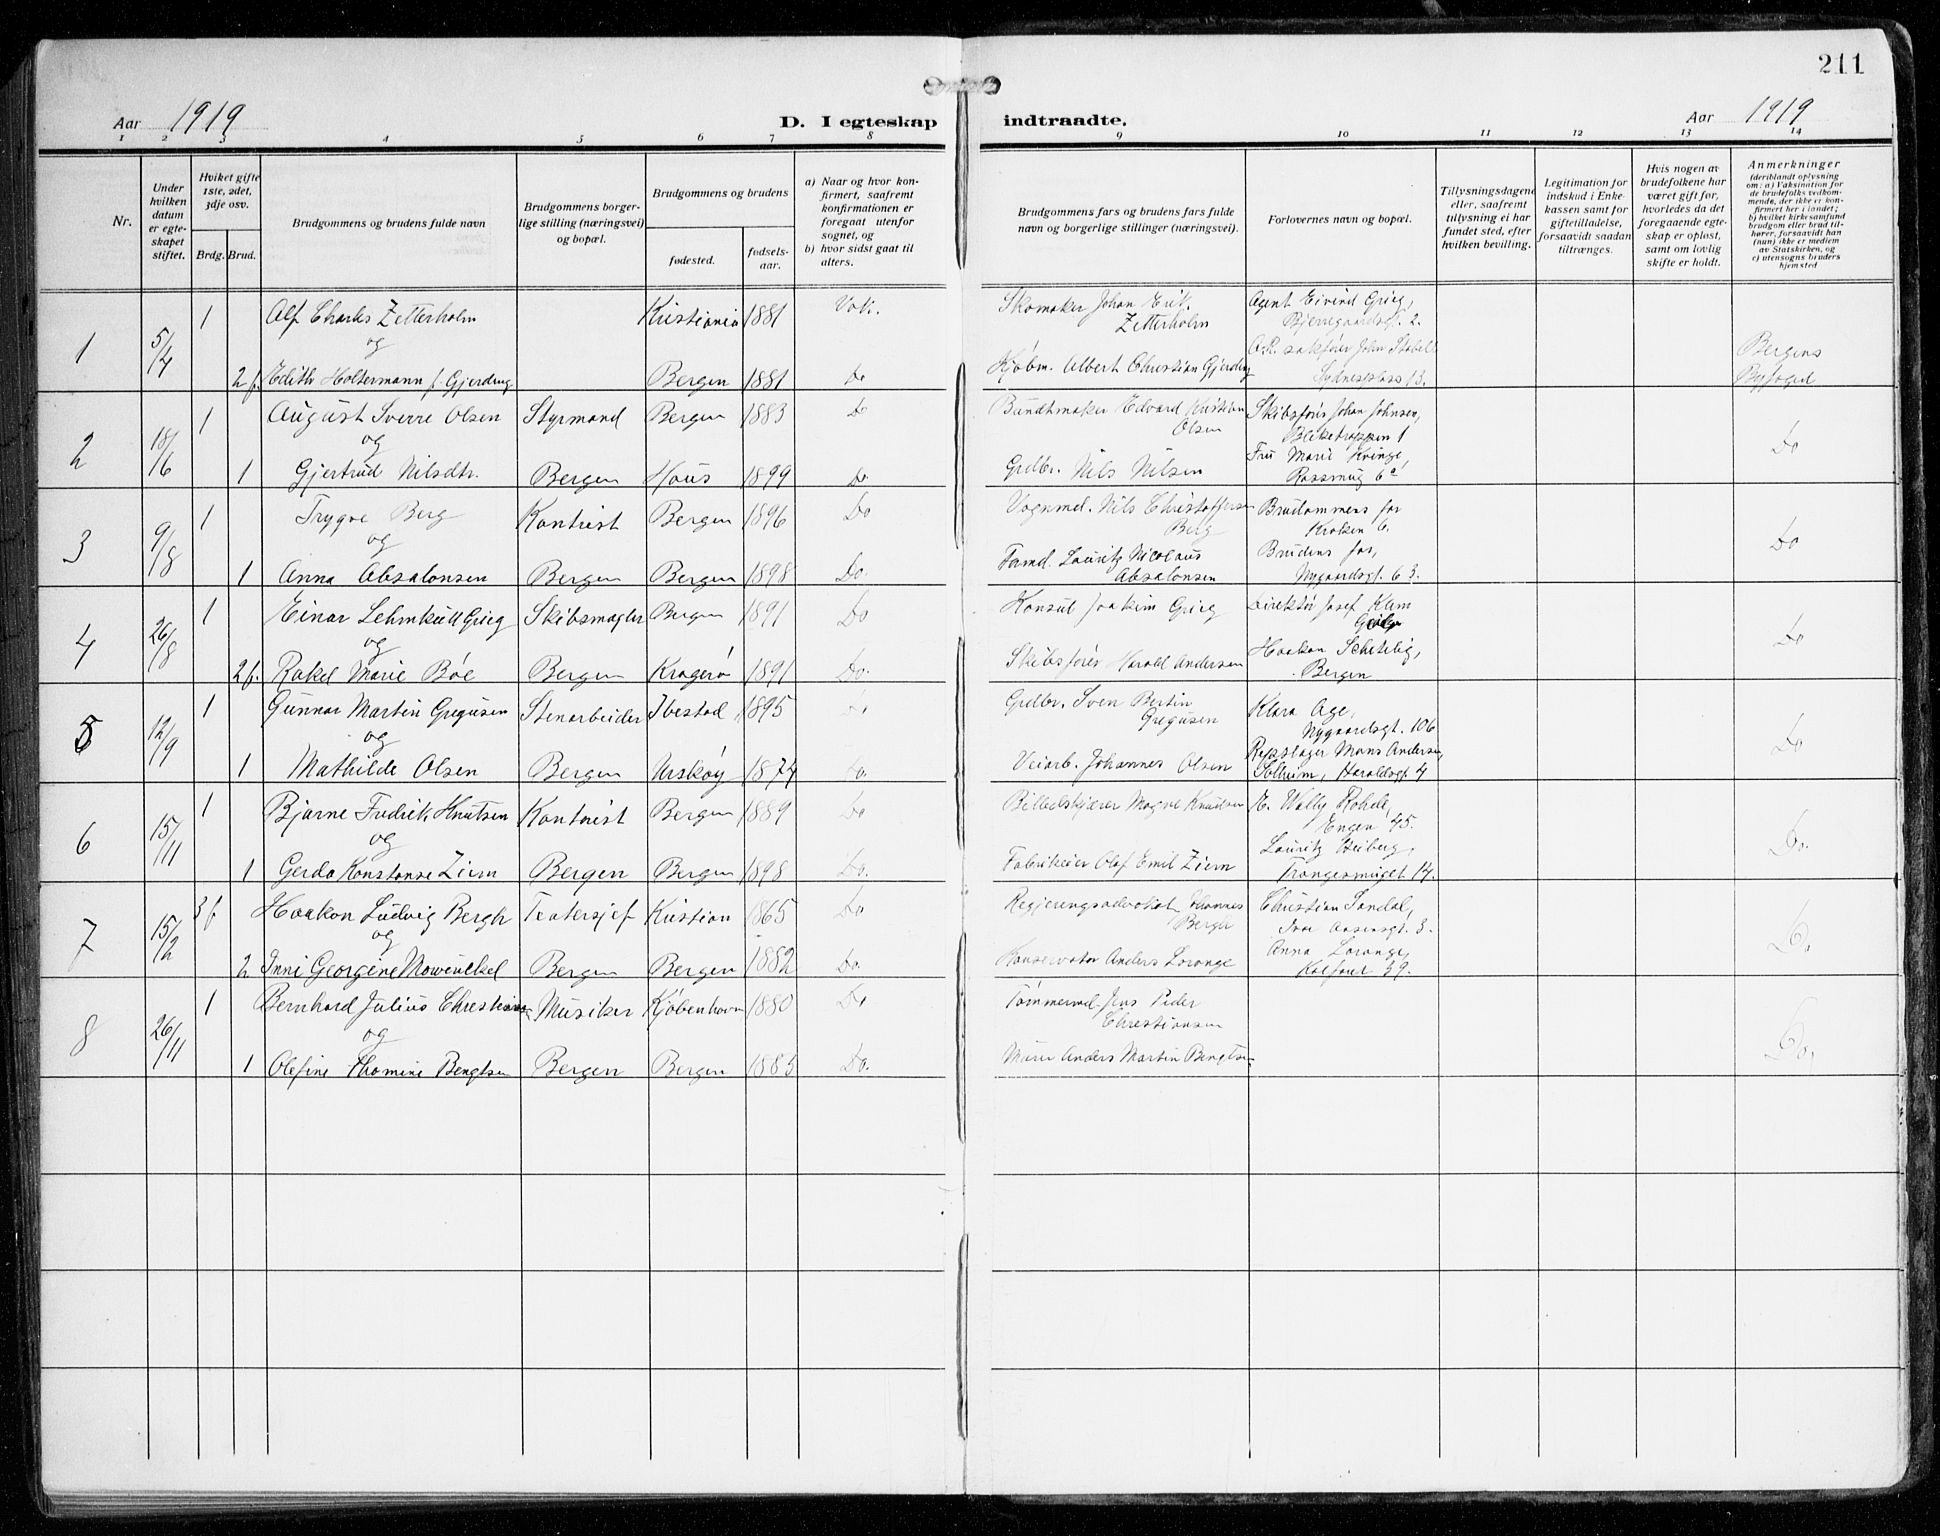 211
Aar 1919
D. I egteskap
indtraadte.
Aar 1919
1 2 3 4 5 6 7 8 9 10 11 12 13 14
Nr.
Under hvilken datum er egteskapet stiftet.
Hviket gifte 1ste, 2det, 3dje osv.
Brdg. Brud.
Brudgommens og brudens fulde navn
Brudgommens borgerlige stilling (næringsvei) og bopæl.
Brudgommens og brudens
fødested.
fødselsaar.
a) Naar og hvor konfirmert, saafremt konfirmationen er foregaat utenfor sognet, og
b) hvor sidst gaat til alters.
Brudgommens fars og brudens fars fulde navn og borgerlige stillinger (næringsvei).
Forlovernes navn og bopæl.
Tillysningsdagene eller, saafremt tillysning ei har fundet sted, efter hvilken bevilling.
Legitimation for indskud i Enkekassen samt for giftetilladelse, forsaavidt saadan tiltrænges.
Hvis nogen av brudefolkene har været gift før, hvorledes da det foregaaende egteskap er opløst, samt om lovlig skifte er holdt.
Anmerkninger (deriblandt oplysning om: a) Vaksination for de brudefolks vedkommende, der ikke er konfirmert her i landet; b) hvilket kirkesamfund brudgom eller brud tilhører, forsaavidt han (hun) ikke er medlem av Statskirken, og c) utensogns bruders hjemsted
1 5/4 1 Alf Charles Zetterholm Kristiania 1881 Skomaker Johan Erik Zetterholm Agent Eivind Grieg, Bjerregaardsgt. 2.
og
2 f. Edith Holtermann f. Gjerding Bergen 1881 Do Kjøbm. Albert Christian Gjerding O.R. sakfører John Stabell Sydnesplass 13. Bergens Byfoged
2 18/16 1 August Sverre Olsen Styrmand Bergen 1883 Do Bundtmaker Edvard Kristian Olsen Skibsfører Johan Johnsen, Bleketrappen 1
og
1 Gjertrud Nilsdtr. Bergen Haus 1899 Do Grdbr. Nils Nilsen Fru Marie Kvinge, Rossmug 6a Do
3 9/8 1 Trygve Berg Kontorist Bergen 1896 Do Vognmd. Nils Christoffersen Berg Brudgommens far Kroken 6.
og
1 Anna Absalonsen Bergen Bergen 1898 Do. Formd. Lauritz Nicolaus Absalonsen Brudens far, Nygaardsgt. 63. Do
4 26/8 1 Einar Lehmkull Grieg Skibsmægler Bergen 1891 Do Konsul Joakim Grieg Direktør Josef Kam
og
2 f. Rakel Marie Bøe Bergen Kragerø 1891 Do. Skibsfører Harald Andersen Haakon Schetelig, Bergen Do
5 12/9 1 Gunnar Martin Gregusen Stenarbeider Ibestad 1895 Do Grdbr. Sven Bertin Gregusen Klara Age, Nygaardsgt. 106
og
1 Mathilde Olsen Bergen Urskog 1874 Do. Veiarb. Johannes Olsen Repslager Mons Andersen, Solheim, Haraldsgt. 4 Do
6 15/11 1 Bjarne Fredrik Knutsen Kontorist Bergen 1889 Do Billedskjærer Magne Knudsen Wally Rohde, Engen 45.
og
1 Gerda Konstanse Ziern Bergen Bergen 1898 Do. Fabrikeier Olaf Emil Ziern Lauritz Heiberg, Trangesmuget 14. Do.
7 15/12 3 f Haakon Ludvig Bergh Teatersjef Kristian 1865 Do Regjeringsadvokat Johannes Bergh Christian Sandal, Ivar Aasensgt. 3.
og
2 Inni Georgine Mowinckel Bergen Bergen 1882 Do. Konservator Anders Lorange Anna Lorange, Kalfaret 39. Do.
8 26/11 1 Bernhard Julius Christiansen Musiker Kjøbenhavn 1880 Do Tømmermd. Jens Peder Christiansen
og
1 Olefine Thomine Bengtsen Bergen Bergen 1885 Do. Murer Anders Martin Bengtsen Do.